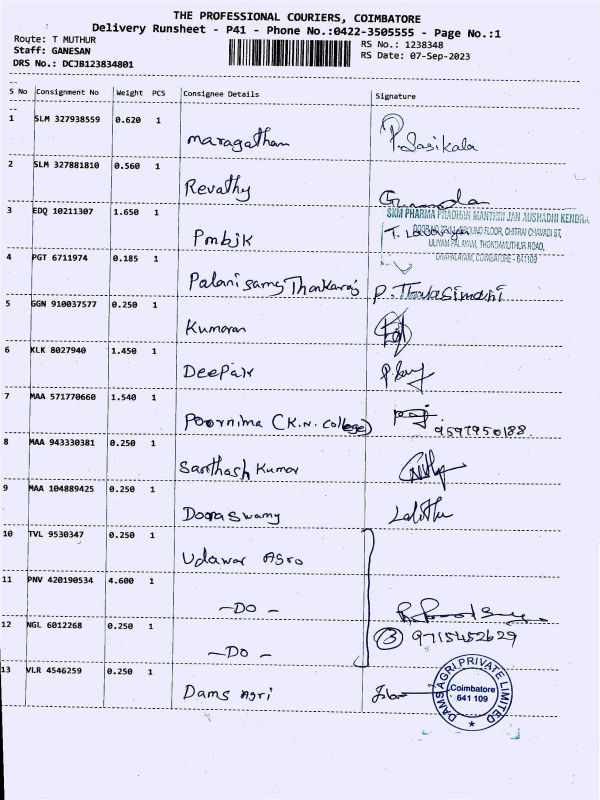 THE PROFESSIONAL COURIERS, COIMBATORE
Delivery Runsheet - P41 - Phone No.:0422-3505555 - Page No.:1
Route: T MUTHUR
RS No.: 1238348
Staff: GANESAN
RS Date: 07-Sep-2023
DRS No.: DCJB123834801
S No Consignment No Weight PCS Consignee Details Signature
1 SLM 327938559 0.620 1
maragatham P. Sasikala
2 SLM 327881810 0.560 1
Revathy
SKM PHARMA PRADHAN MANTHRI JAN AUSHADHI KENDRA
3 EDQ 10211307 1.650 1
GROUND FLOOR, CHITRAI CHAVADI ST,
Pmbjk T. Lavanya
ULIYAM PALAYAM, THONDAMUTHUR ROAD,
COIMBATORE - 641109
4 PGT 6711974 0.185 1
Palanisamy Thankaraj P. Thulasimani
5 GGN 910037577 0.250 1
Kumaran
6 KLK 8027940 1.450 1
Deepak
7 MAA 571770660 1.540 1
Poornima (K.N. College)
9597950188
8 MAA 943330381 0.250 1
Santhash Kumar
9 MAA 104889425 0.250 1
Doraswamy Lalitha
10 TVL 9530347 0.250 1
Udawar Agro
11 PNV 420190534 4.600 1
-Do-
12 NGL 6012268 0.250 1
3 9715452629
-Do-
13 VLR 4546259 0.250 1
Dams Agri
DAMS AGRI PRIVATE LIMITED
Coimbatore
641 109